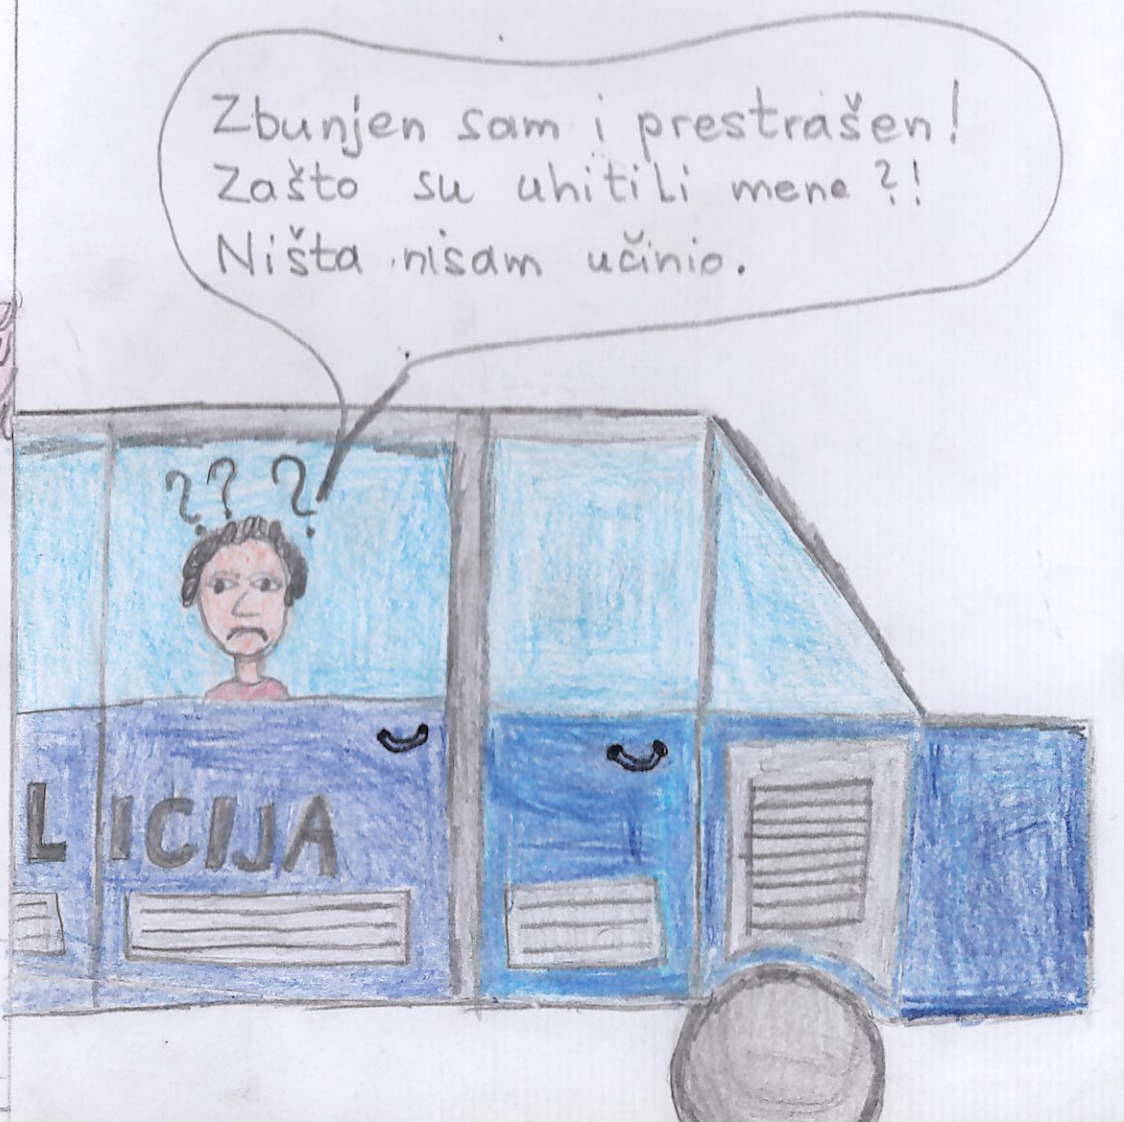 Zbunjen sam i prestrašen!
Zašto su uhitili mene?!
Ništa nisam učinio.
? ? ?
LICIJA